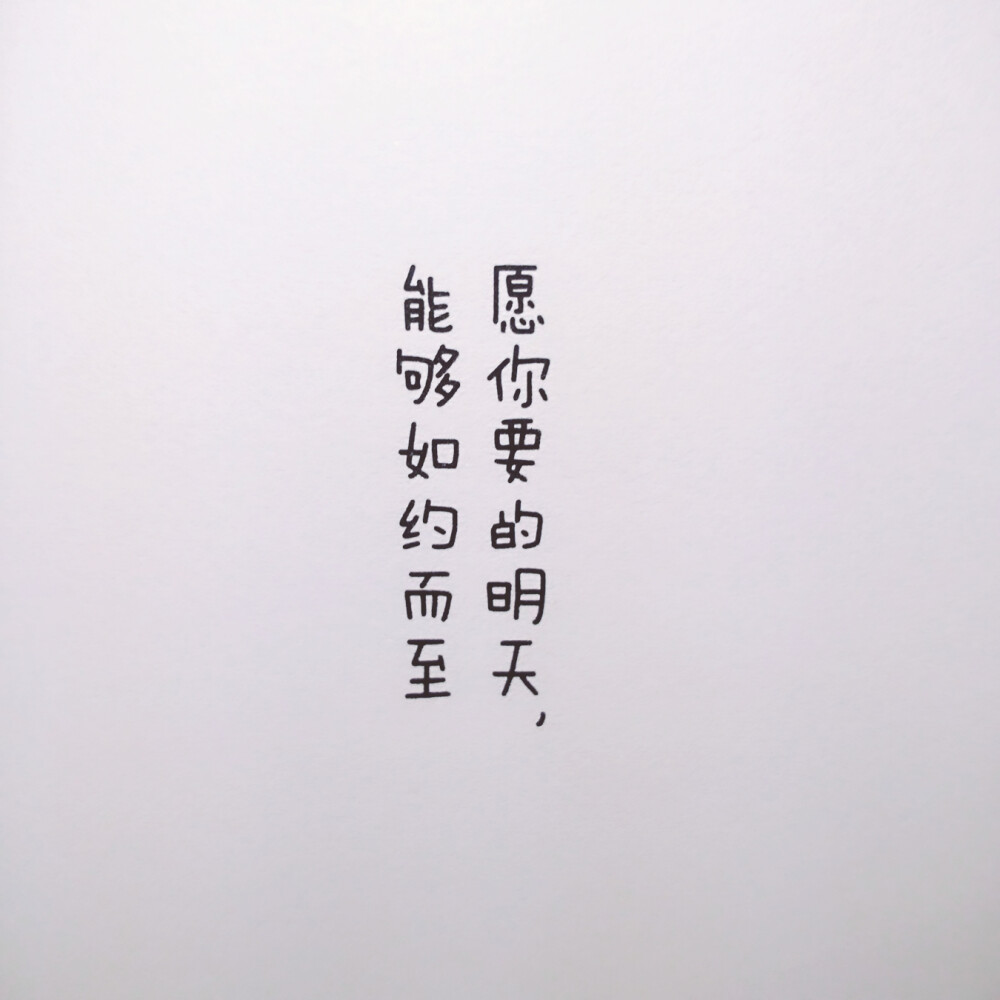 愿你要的明天，
能够如约而至